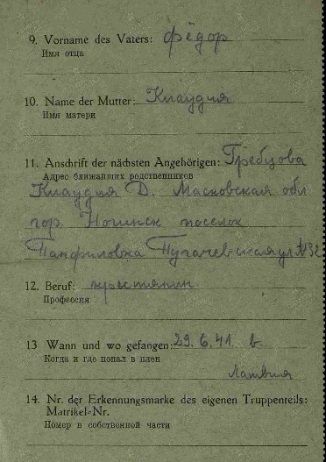 9. Vorname des Vaters: фёдор
Имя отца
10. Name der Mutter: Клаудия
Имя матери
11. Anschrift der nächsten Angehörigen: Гребцова
Адрес ближайших родственников
Клаудия Д. Масковская обл
гор. Ногинск поселок
Панфиловка Пугачевская ул №32
12. Beruf: крестянин
Профессия
13 Wann und wo gefangen: 29.6.41. в
Когда и где попал в плен
Латвия
14. Nr. der Erkennungsmarke des eigenen Truppenteils:
Matrikel-Nr.
Номер в собственной части